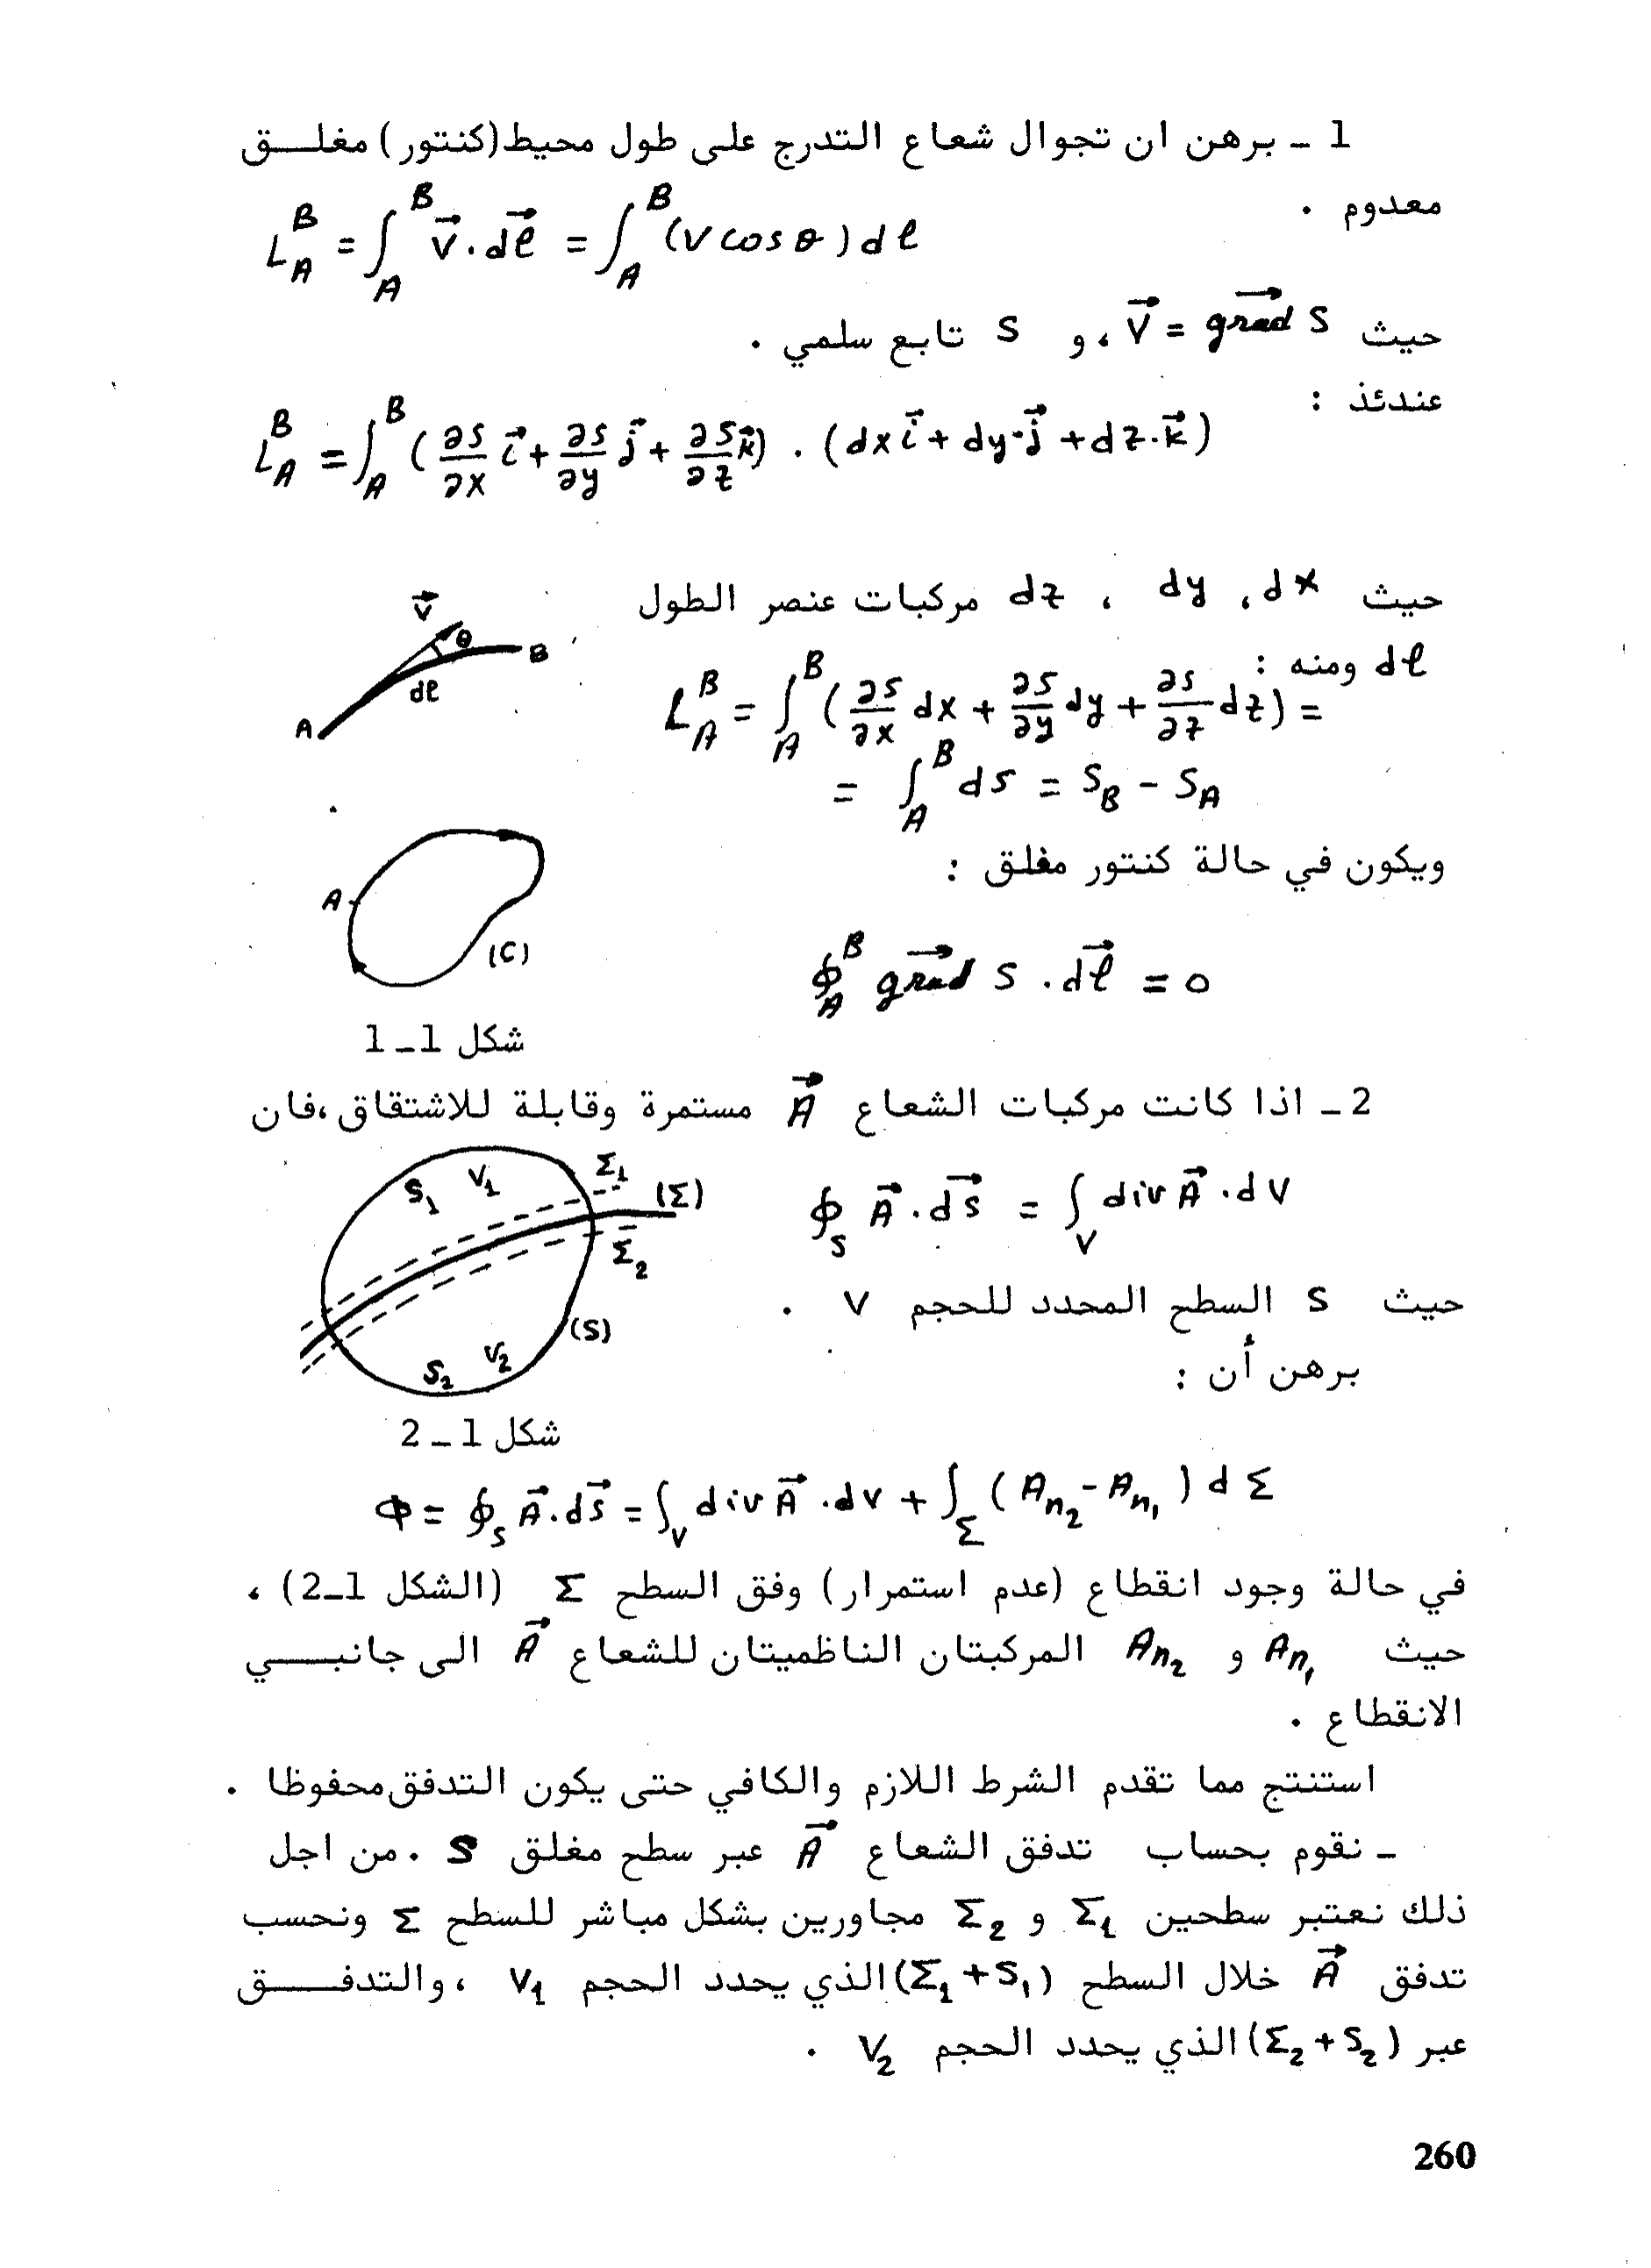 1 ـ برهن ان تجوال شعاع التدرج على طول محيط(كنتور) مغلـــق
معدوم .
L_A^B = ∫_A^B V⃗.dℓ⃗ = ∫_A^B (V cos θ) dℓ
حيث V⃗ = grad⃗ S ، و S تابع سلمي .
عندئذ :
L_A^B = ∫_A^B (∂S/∂x i⃗ + ∂S/∂y j⃗ + ∂S/∂z k⃗) . (dx i⃗ + dy.j⃗ + dz.k⃗)
حيث dx ، dy ، dz مركبات عنصر الطول
dℓ ومنه :
L_A^B = ∫_A^B (∂S/∂x dx + ∂S/∂y dy + ∂S/∂z dz) =
= ∫_A^B dS = S_B - S_A
V⃗
θ
B
dℓ
A
ويكون في حالة كنتور مغلق :
∮_A^B grad⃗ S . dℓ⃗ = 0
A
(C)
شكل 1ـ1
2 ـ اذا كانت مركبات الشعاع A⃗ مستمرة وقابلة للاشتقاق ،فان
∮_S A⃗.dS⃗ = ∫_V div A⃗ .dV
حيث S السطح المحدد للحجم V .
برهن أن :
S₁ V₁ Σ₁
(Σ)
Σ₂
(S)
S₂ V₂
شكل 1 ـ 2
Φ = ∮_S A⃗.dS⃗ = ∫_V div A⃗ .dV + ∫_Σ (A_n₂ - A_n₁) dΣ
في حالة وجود انقطاع (عدم استمرار) وفق السطح Σ (الشكل 1ـ2) ،
حيث A_n₁ و A_n₂ المركبتان الناظميتان للشعاع A⃗ الى جانبـــي
الانقطاع .
استنتج مما تقدم الشرط اللازم والكافي حتى يكون التدفق محفوظا .
ـ نقوم بحساب تدفق الشعاع A⃗ عبر سطح مغلق S . من اجل
ذلك نعتبر سطحين Σ₁ و Σ₂ مجاورين بشكل مباشر للسطح Σ ونحسب
تدفق A⃗ خلال السطح (Σ₁+S₁) الذي يحدد الحجم V₁ ، والتدفـــق
عبر (Σ₂+S₂) الذي يحدد الحجم V₂ .
260